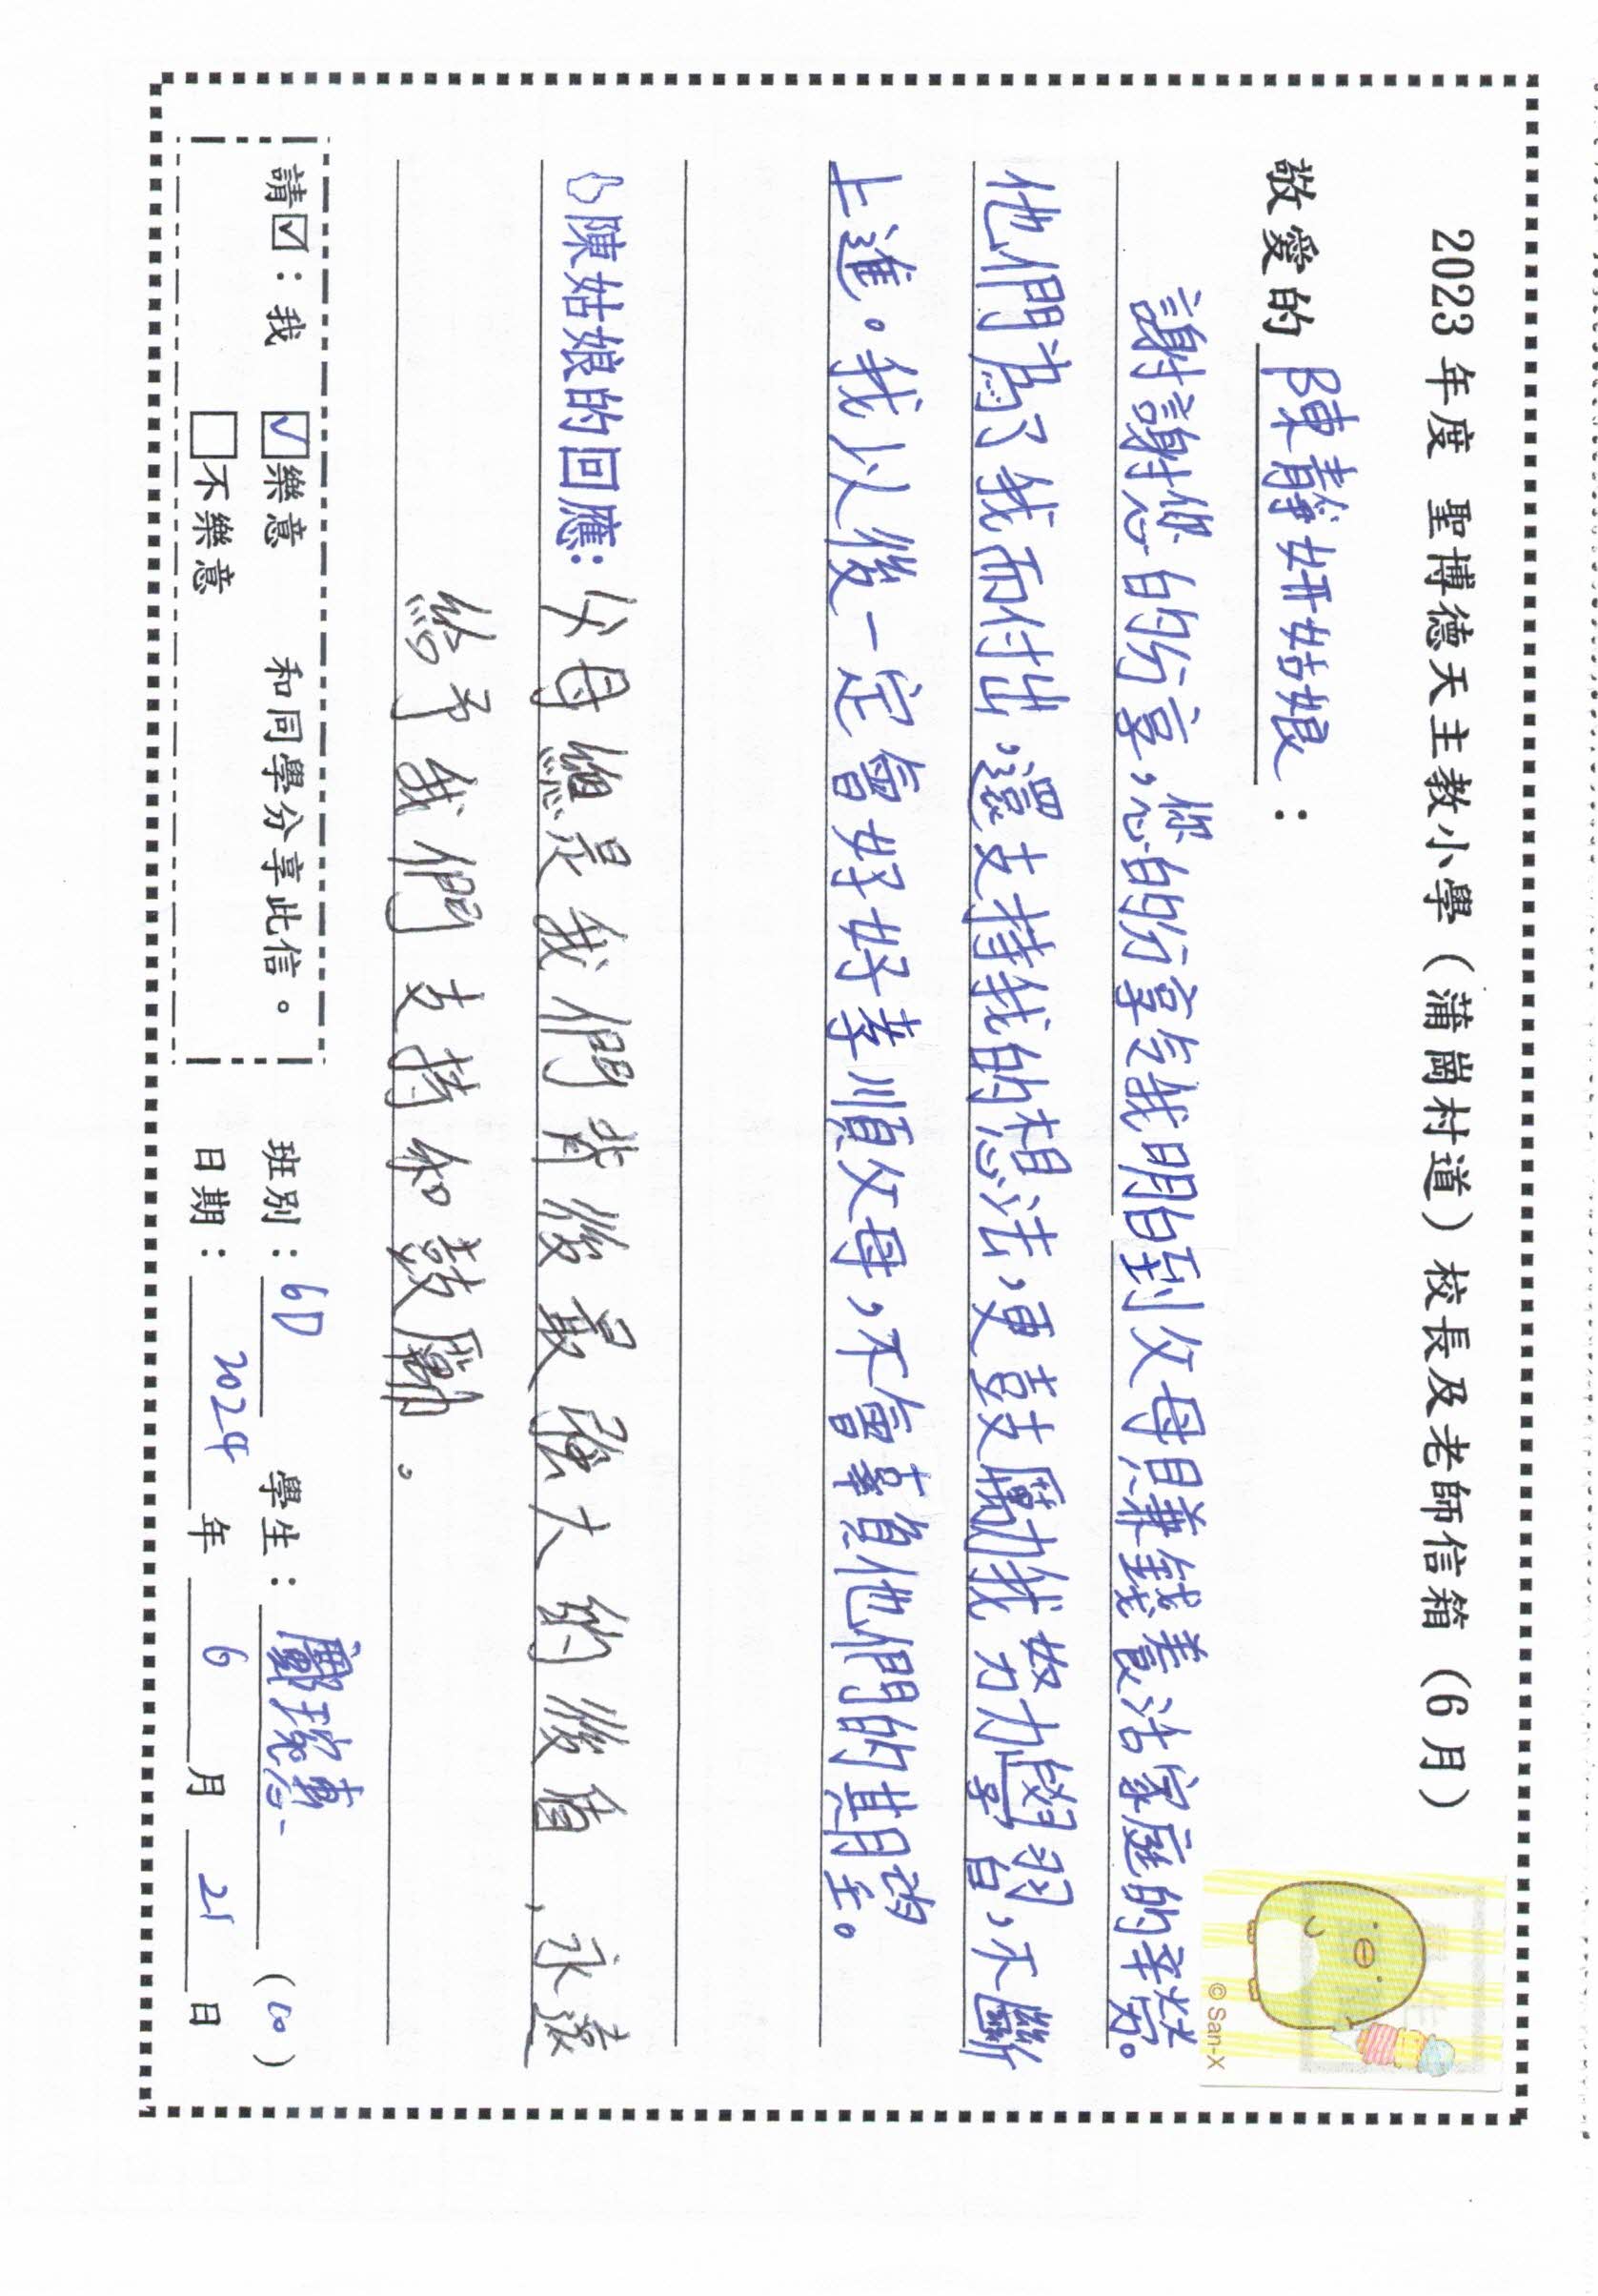 2023 年度 聖博德天主教小學（蒲崗村道）校長及老師信箱（6 月）
敬愛的 陳靜妍姑娘 ：
謝謝您的分享，您的分享令我明白到父母賺錢養活家庭的辛勞。
他們為了我而付出，還支持我的想法，更鼓勵我努力學習，不斷
上進。我以後一定會好好孝順父母，不會辜負他們的期望。
陳姑娘的回應：父母總是我們背後最強大的後盾，永遠
給予我們支持和鼓勵。
請☑：我 ☑樂意 和同學分享此信。
□不樂意
班別：6D 學生： （ ）
日期：2024 年 6 月 21 日
© San-X